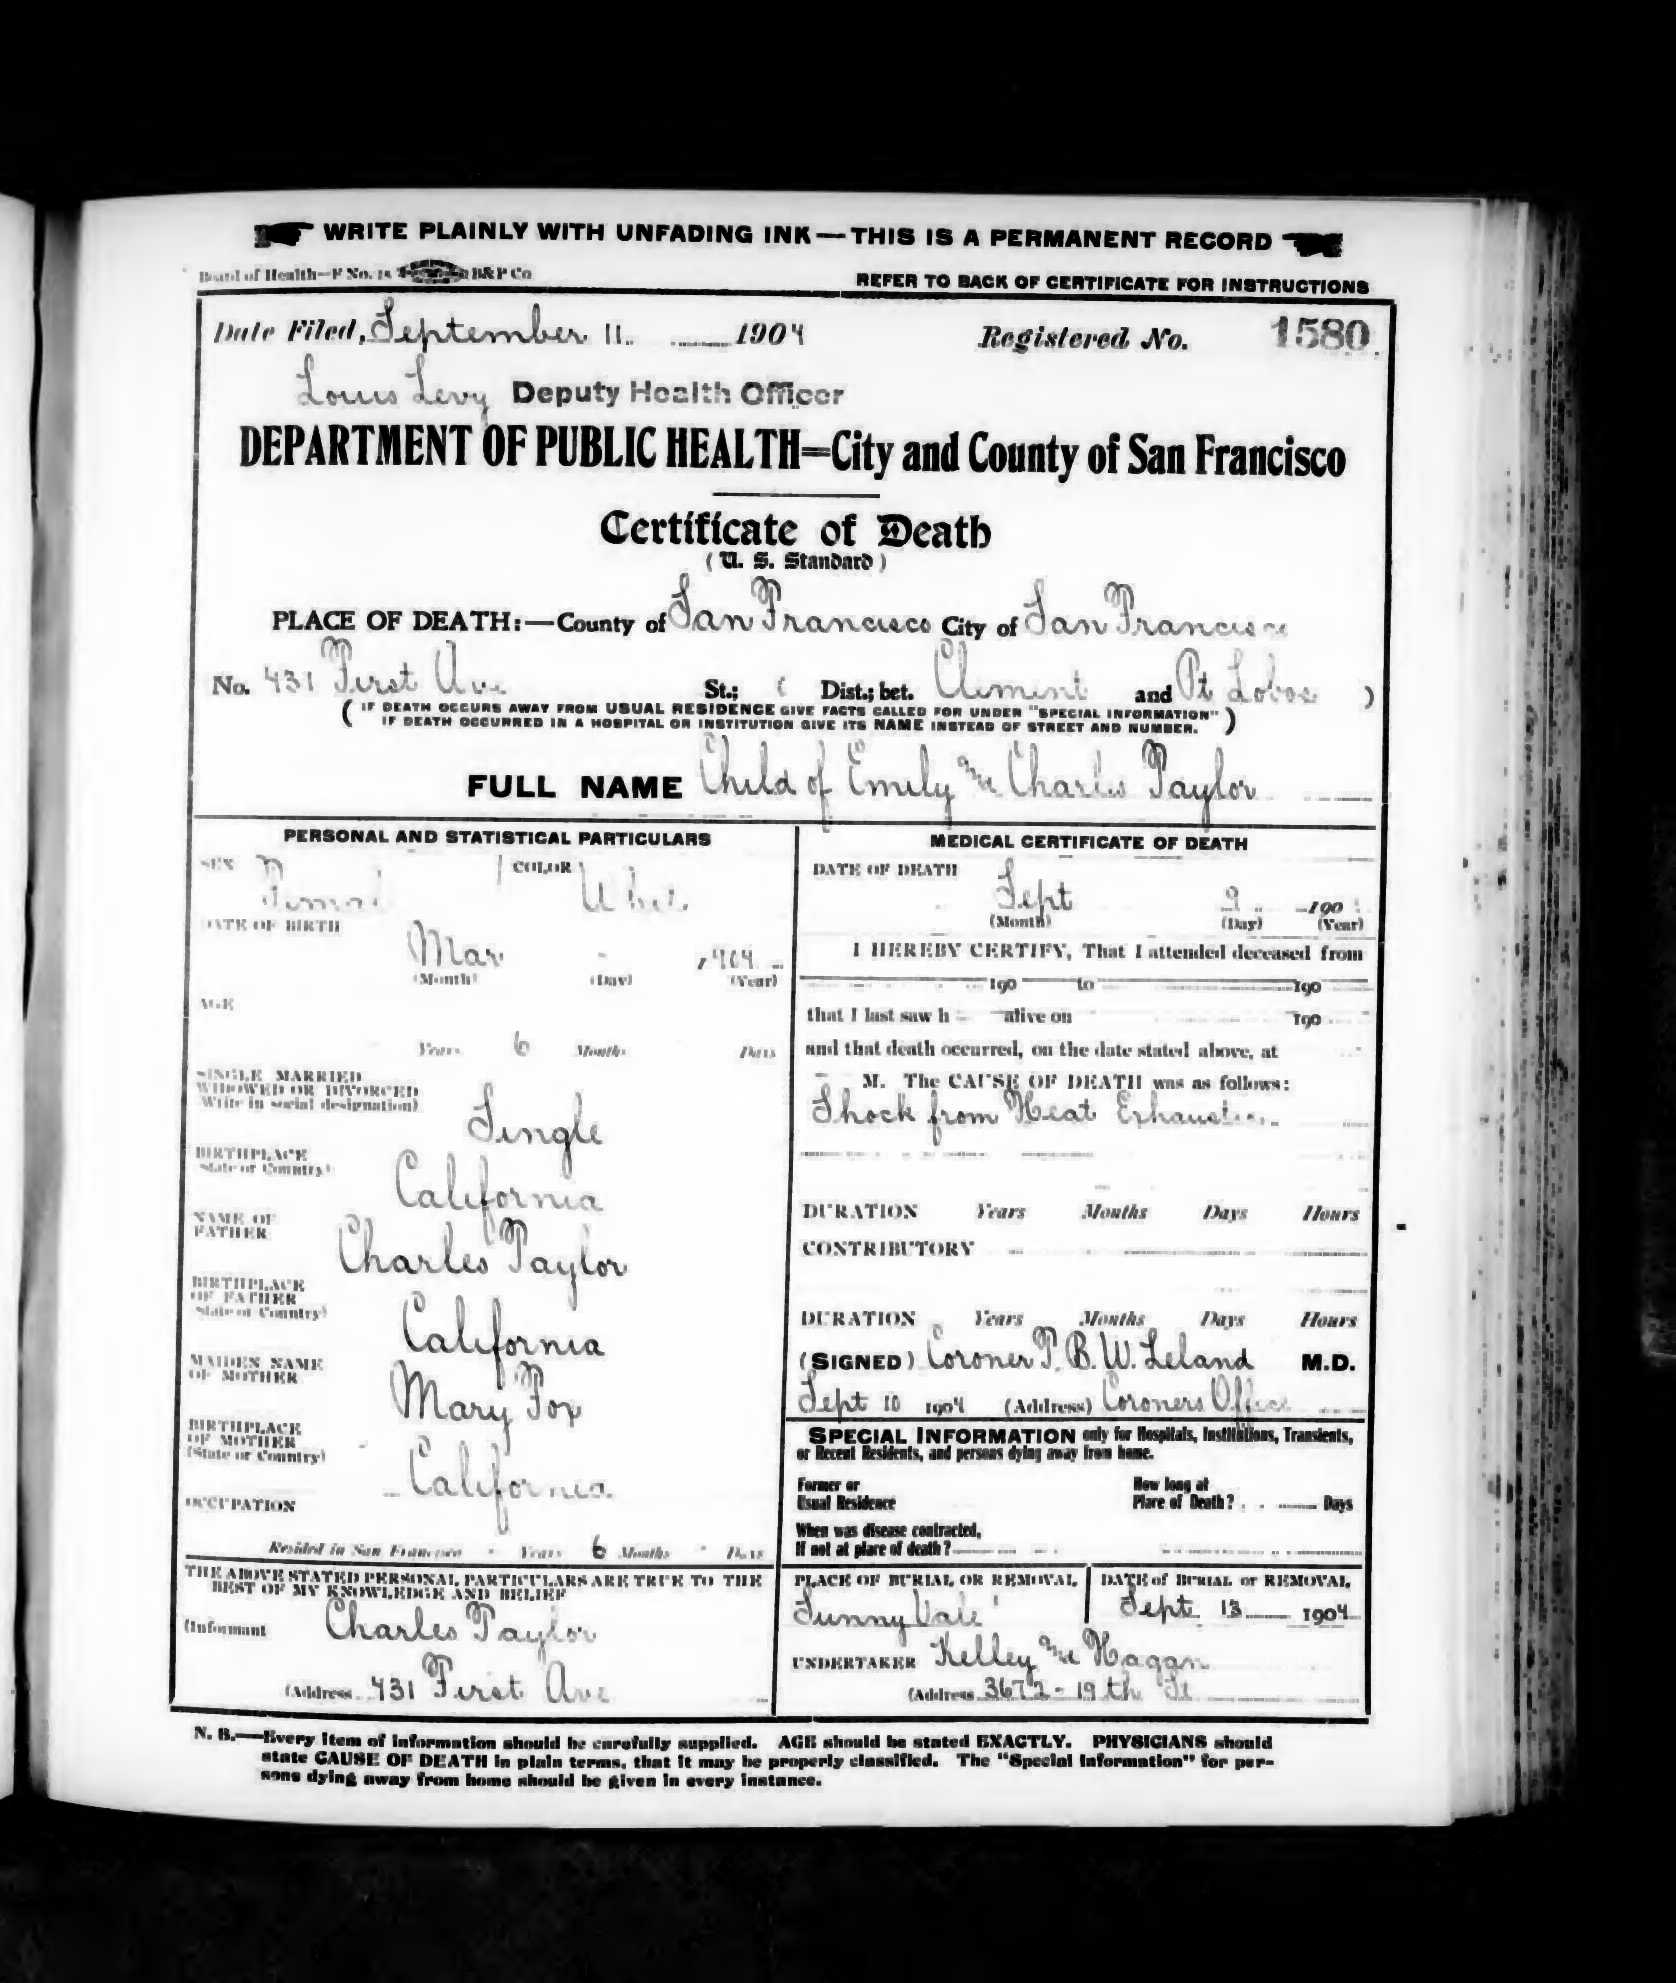 WRITE PLAINLY WITH UNFADING INK—THIS IS A PERMANENT RECORD
Board of Health—F No. B&P Co
REFER TO BACK OF CERTIFICATE FOR INSTRUCTIONS
Date Filed, September 11. 1904 Registered No. 1580
Louis Levy Deputy Health Officer
DEPARTMENT OF PUBLIC HEALTH=City and County of San Francisco
Certificate of Death
(U. S. Standard)
PLACE OF DEATH:—County of San Francisco City of San Francisco
No. 431 First Ave St.; Dist.; bet. Clement and Pt Lobos )
( IF DEATH OCCURS AWAY FROM USUAL RESIDENCE GIVE FACTS CALLED FOR UNDER "SPECIAL INFORMATION"
IF DEATH OCCURRED IN A HOSPITAL OR INSTITUTION GIVE ITS NAME INSTEAD OF STREET AND NUMBER. )
FULL NAME Child of Emily and Charles Taylor
PERSONAL AND STATISTICAL PARTICULARS
SEX Femal COLOR Whit
DATE OF BIRTH
Mar - 1904
(Month) (Day) (Year)
AGE
Years 6 Months Days
SINGLE MARRIED
WIDOWED OR DIVORCED
Write in social designation)
Single
BIRTHPLACE
State or Country)
California
NAME OF
FATHER
Charles Taylor
BIRTHPLACE
OF FATHER
State or Country)
California
MAIDEN NAME
OF MOTHER
Mary Fox
BIRTHPLACE
OF MOTHER
(State or Country)
California
OCCUPATION
Resided in San Francisco Years 6 Months Days
THE ABOVE STATED PERSONAL PARTICULARS ARE TRUE TO THE
BEST OF MY KNOWLEDGE AND BELIEF
(Informant Charles Taylor
(Address 431 First Ave
MEDICAL CERTIFICATE OF DEATH
DATE OF DEATH
Sept 9 190
(Month) (Day) (Year)
I HEREBY CERTIFY, That I attended deceased from
190 to 190
that I last saw h alive on 190
and that death occurred, on the date stated above, at
M. The CAUSE OF DEATH was as follows:
Shock from Heat Exhaustion
DURATION Years Months Days Hours
CONTRIBUTORY
DURATION Years Months Days Hours
(SIGNED) Coroner T. B. W. Leland M.D.
Sept 10 1904 (Address) Coroners Office
SPECIAL INFORMATION only for Hospitals, Institutions, Transients,
or Recent Residents, and persons dying away from home.
Former or
Usual Residence
How long at
Place of Death? Days
When was disease contracted,
If not at place of death?
PLACE OF BURIAL OR REMOVAL
Sunny Vale
DATE of BURIAL or REMOVAL
Sept 13 1904
UNDERTAKER Kelley and Hagan
(Address 3672 - 19th St
N. B.—Every item of information should be carefully supplied. AGE should be stated EXACTLY. PHYSICIANS should
state CAUSE OF DEATH in plain terms, that it may be properly classified. The "Special Information" for per-
sons dying away from home should be given in every instance.